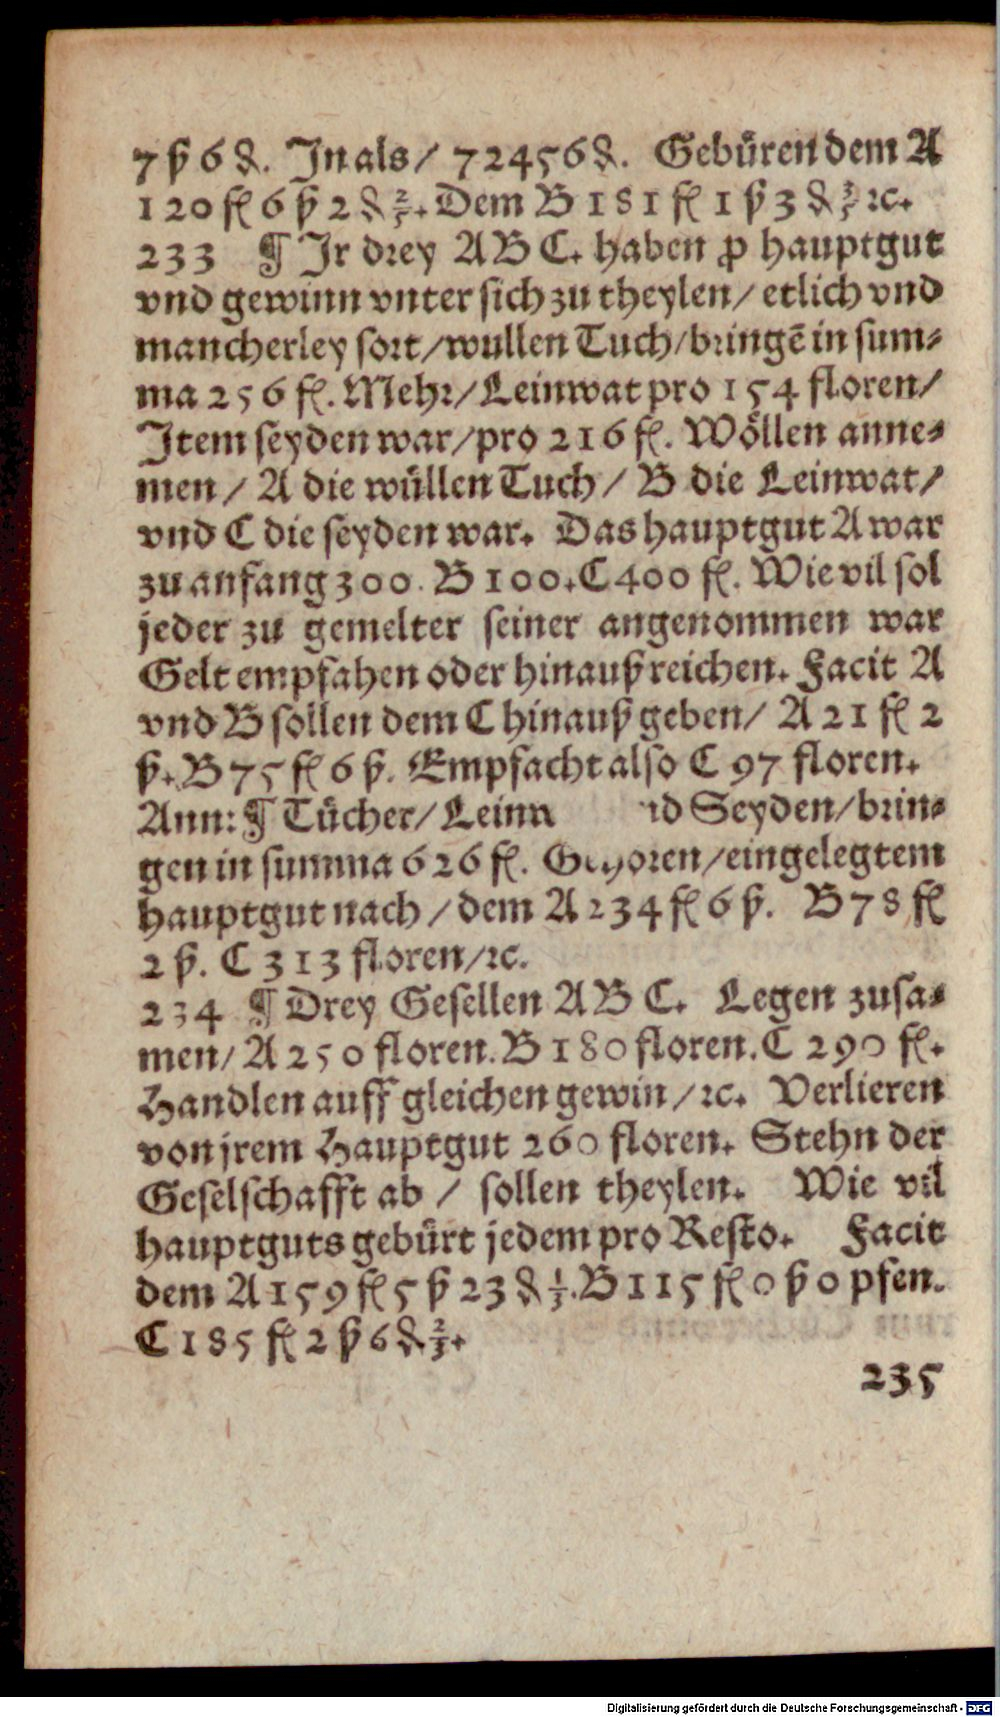 7 ß 6 ₰. In als/ 72456 ₰. Gebüren dem A
120 fl 6 ß 2 ₰ 2/5. Dem B 181 fl 1 ß 3 ₰ 3/5 ꝛc.
233 ¶ Ir drey A B C. haben ꝓ hauptgut
vnd gewinn vnter sich zu theylen/ etlich vnd
mancherley sort/ wullen Tuch/ bringē in sum⸗
ma 256 fl. Mehr/ Leinwat pro 154 floren/
Item seyden war/ pro 216 fl. Wöllen anne⸗
men/ A die wüllen Tuch/ B die Leinwat/
vnd C die seyden war. Das hauptgut A war
zu anfang 300. B 100. C 400 fl. Wie vil sol
jeder zu gemelter seiner angenommen war
Gelt empfahen oder hinauß reichen. Facit A
vnd B sollen dem C hinauß geben/ A 21 fl 2
ß. B 75 fl 6 ß. Empfacht also C 97 floren.
Ann: ¶ Tücher/ Leinn Seyden/ brin⸗
gen in summa 626 fl. Gehoren/ eingelegtem
hauptgut nach/ dem A 234 fl 6 ß. B 78 fl
2 ß. C 313 floren/ ꝛc.
234 ¶ Drey Gesellen A B C. Legen zusa⸗
men/ A 250 floren. B 180 floren. C 290 fl.
Handlen auff gleichen gewin/ ꝛc. Verlieren
von jrem Hauptgut 260 floren. Stehn der
Geselschafft ab/ sollen theylen. Wie vil
hauptguts gebürt jedem pro Resto. Facit
dem A 159 fl 5 ß 23 ₰ 1/3. B 115 fl 0 ß 0 pfen.
C 185 fl 2 ß 6 ₰ 2/3.
235
Digitalisierung gefördert durch die Deutsche Forschungsgemeinschaft - DFG